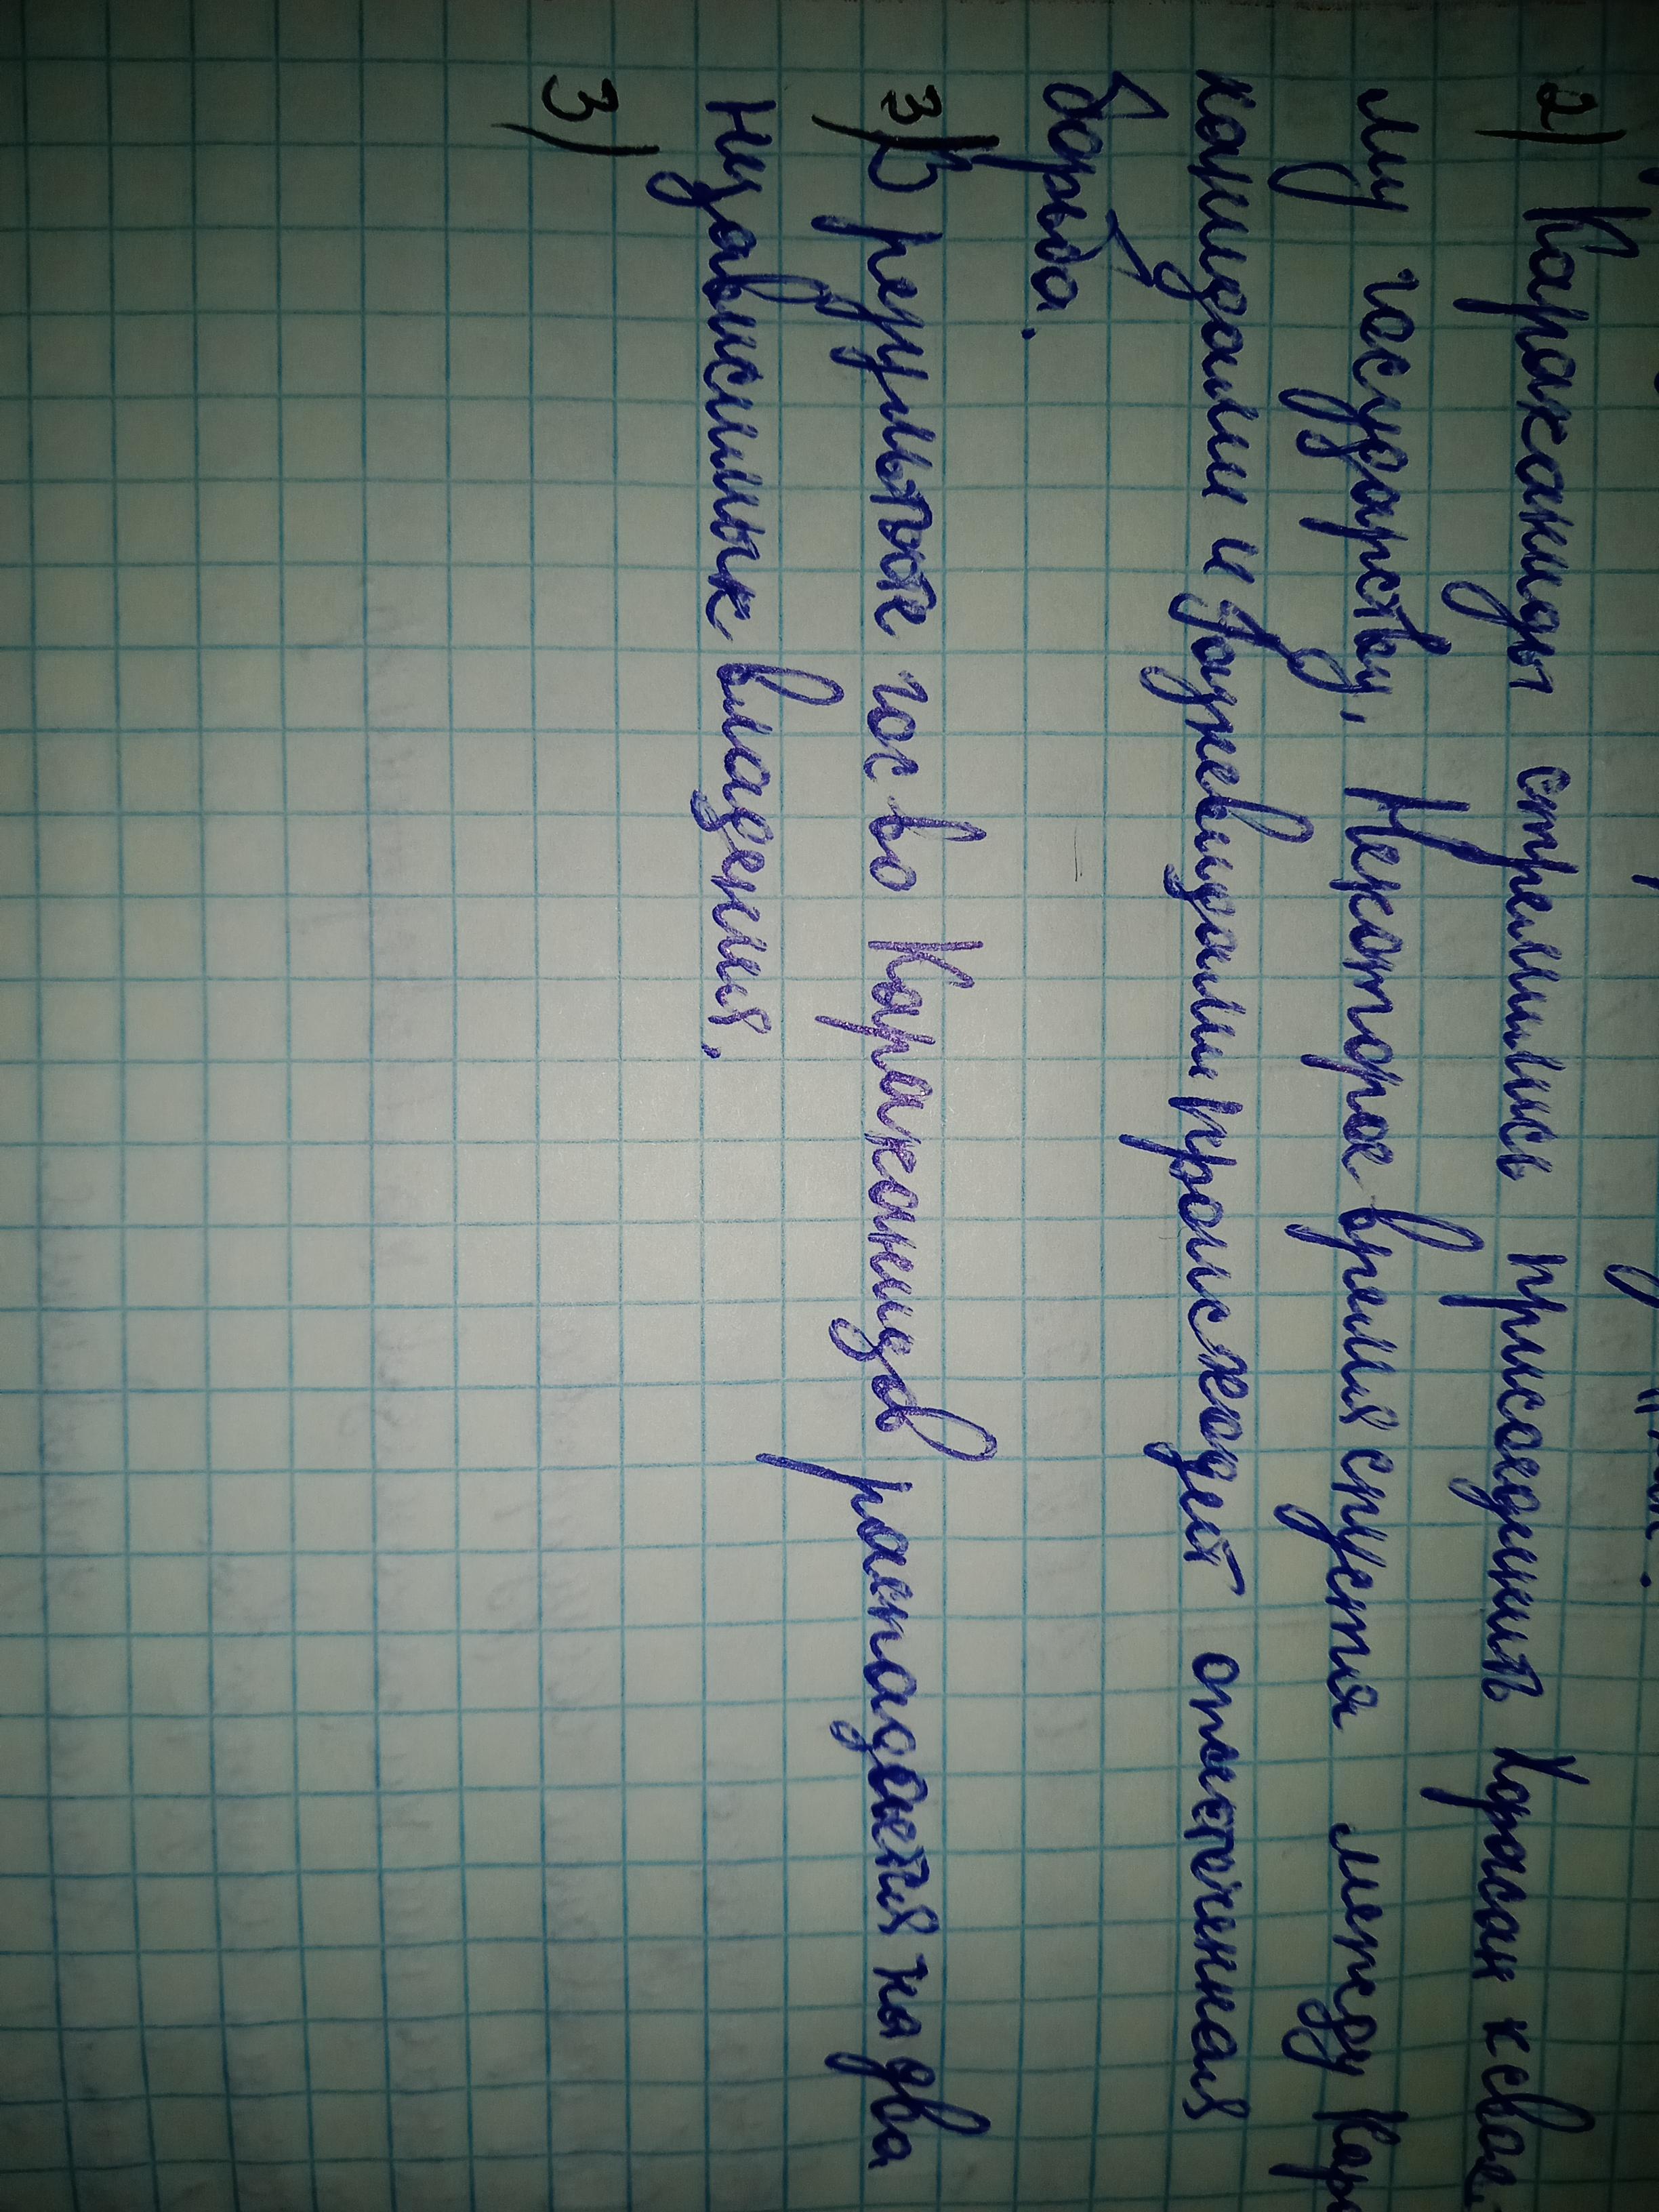 2) Караханиды стремились присоединить Хорасан к свое-
му государству. Некоторое время спустя между Кара
ханидами и Газневидами происходит ожесточенная
борьба.
3) В результате гос-во Караханидов распадается на два
независимых владения.
3)